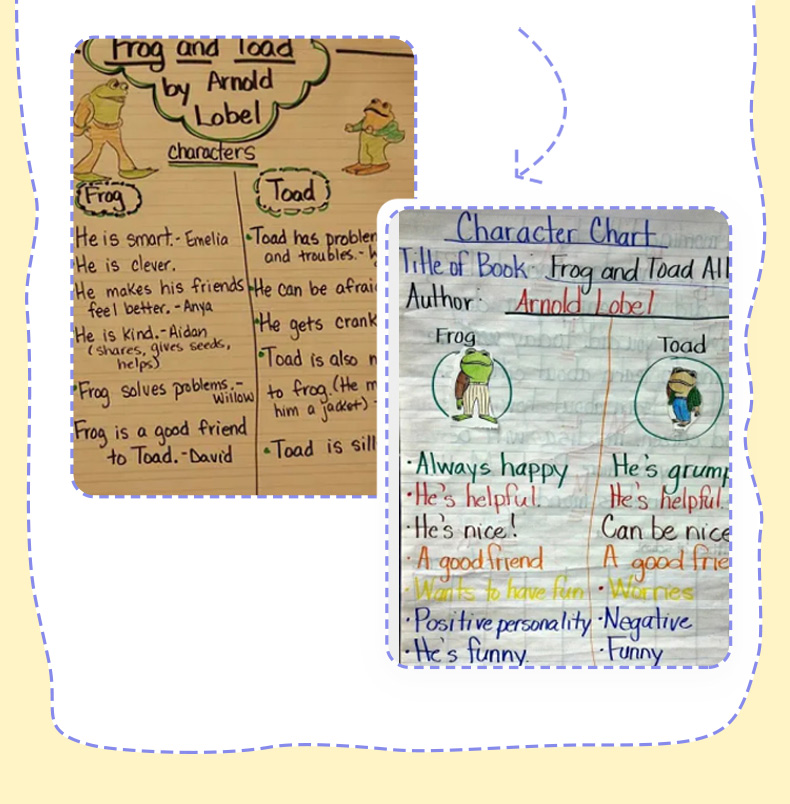 Frog and Toad
by Arnold
Lobel
characters
Frog
He is smart.- Emelia
He is clever.
He makes his friends
feel better. -Anya
He is kind.-Aidan
(shares, gives seeds,
helps)
Frog solves problems.-
Willow
Frog is a good friend
to Toad.-David
Toad
•Toad has
and troubles.-
He can be
He gets
•Toad is also
to frog.(He
him a jacket)
•Toad is
Character Chart
Title of Book: Frog and Toad All
Author: Arnold Lobel
Frog
·Always happy
·He's helpful.
·He's nice!
·A good friend
·Wants to have fun
·Positive personality
·He's funny.
Toad
He's
He's helpful.
Can be nice
A good
·Worries
·Negative
·Funny